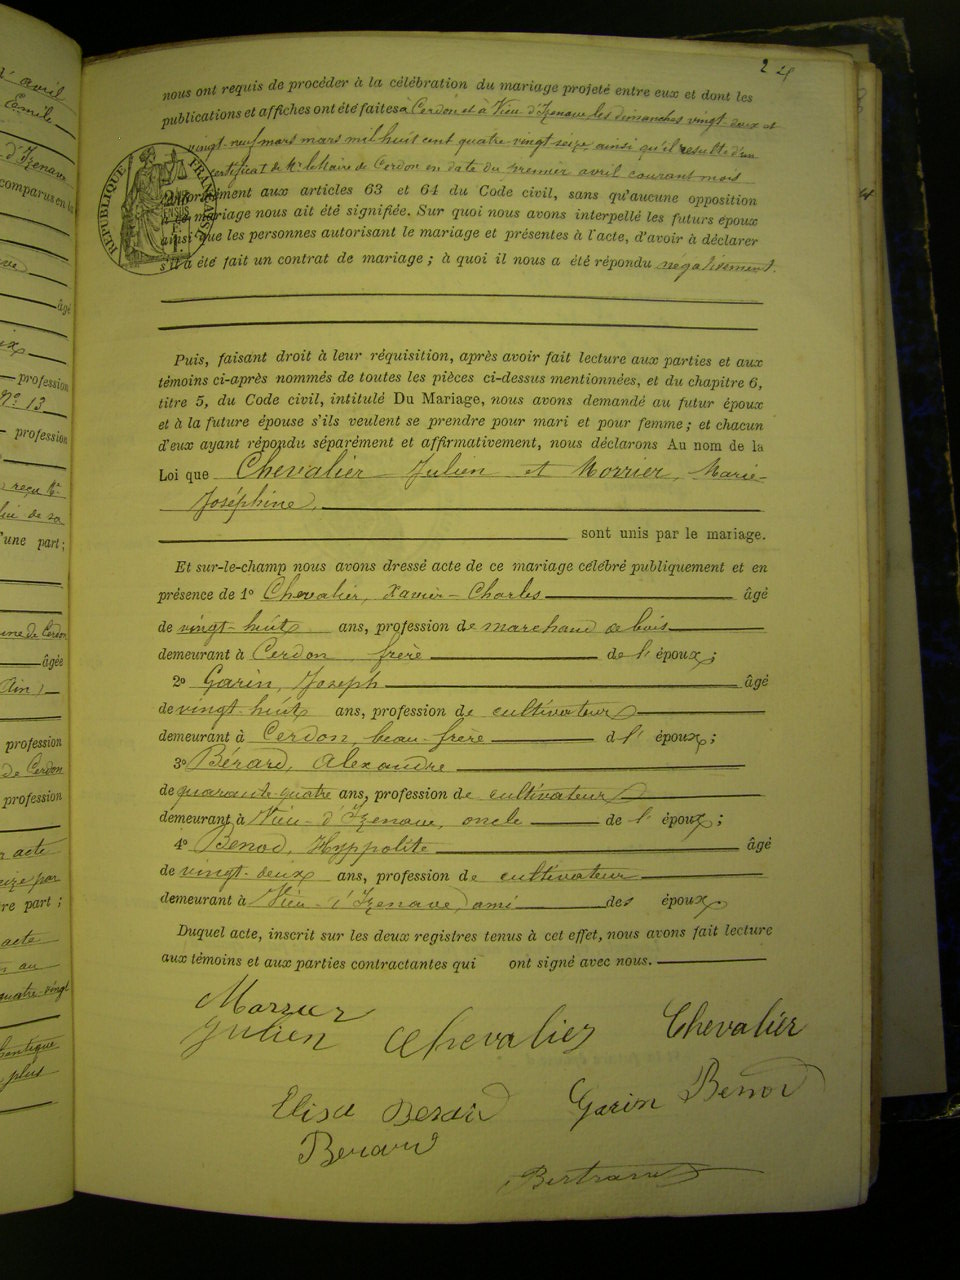 2 4
nous ont requis de procéder à la célébration du mariage projeté entre eux et dont les
publications et affiches ont été faites à Cerdon et à Vieu d'Izenave les dimanches vingt deux et
vingt-neuf mars mars mil huit cent quatre-vingt seize ainsi qu'il resulte d'un
certificat de Mr le Maire de Cerdon en date du premier avril courant mois
conformément aux articles 63 et 64 du Code civil, sans qu'aucune opposition
à ce mariage nous ait été signifiée. Sur quoi nous avons interpellé les futurs époux
ainsi que les personnes autorisant le mariage et présentes à l'acte, d'avoir à déclarer
s'il a été fait un contrat de mariage ; à quoi il nous a été répondu négativement.
RÉPUBLIQUE FRANÇAISE
Puis, faisant droit à leur réquisition, après avoir fait lecture aux parties et aux
témoins ci-après nommés de toutes les pièces ci-dessus mentionnées, et du chapitre 6,
titre 5, du Code civil, intitulé Du Mariage, nous avons demandé au futur époux
et à la future épouse s'ils veulent se prendre pour mari et pour femme ; et chacun
d'eux ayant répondu séparément et affirmativement, nous déclarons Au nom de la
Loi que Chevalier Julien et Morrier, Marie-
Joséphine,
sont unis par le mariage.
Et sur-le-champ nous avons dressé acte de ce mariage célébré publiquement et en
présence de 1º Chevalier, Xavier-Charles âgé
de vingt-huit ans, profession de marchand de bois
demeurant à Cerdon, frère de l'époux ;
2º Garin, Joseph âgé
de vingt-huit ans, profession de cultivateur
demeurant à Cerdon, beau-frère d l'époux ;
3º Bérard, Alexandre
de quarante-quatre ans, profession de cultivateur
demeurant à Vieu-d'Izenave, oncle de l'époux ;
4º Benod, Hyppolite âgé
de vingt-deux ans, profession de cultivateur
demeurant à Vieu-d'Izenave, ami des époux
Duquel acte, inscrit sur les deux registres tenus à cet effet, nous avons fait lecture
aux témoins et aux parties contractantes qui ont signé avec nous.
Morrier
Julien Chevalier Chevalier
Elisa Berard Garin Benod
Berard
Bertrand